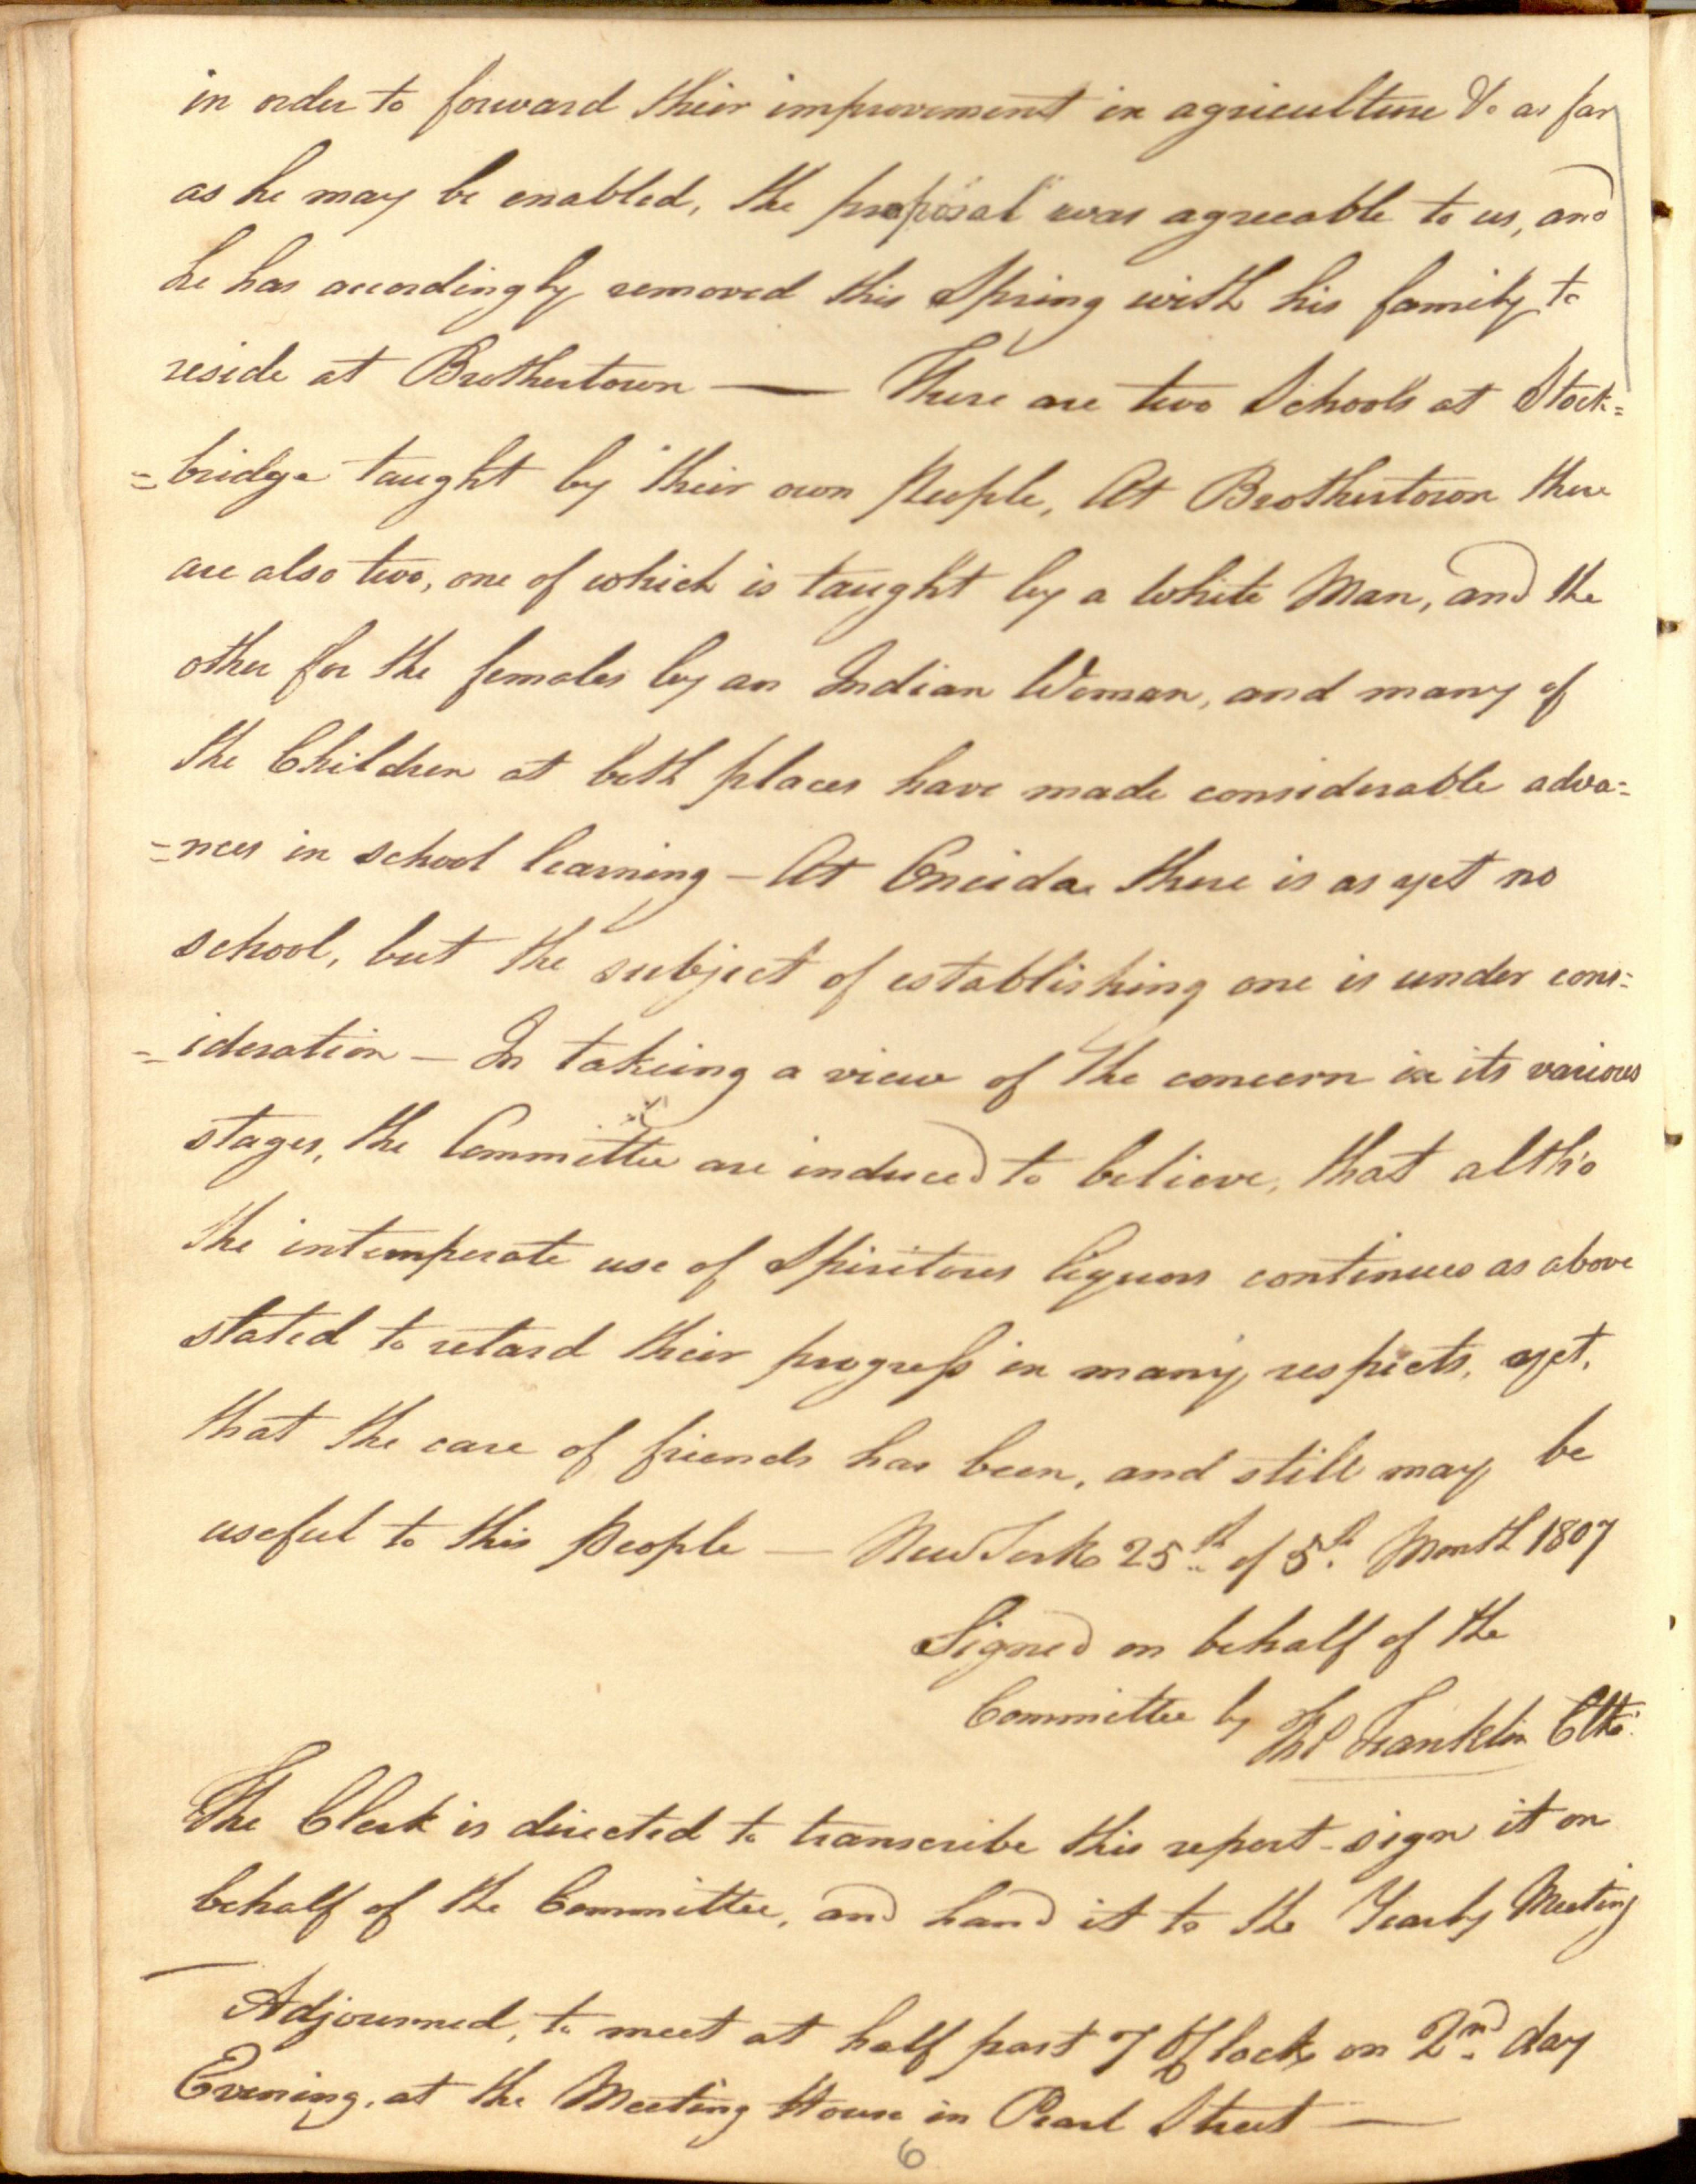 in order to forward their improvement in agriculture &c as far
as he may be enabled, the proposal was agreeable to us, and
he has accordingly removed this Spring with his family to
reside at Brothertown — There are two Schools at Stock=
=bridge taught by their own People, At Brothertown there
are also two, one of which is taught by a White Man, and the
other for the females by an Indian Woman, and many of
the Children at both places have made considerable adva=
=nces in school learning — At Oneida there is as yet no
school, but the subject of establishing one is under cons=
=ideration — In takeing a view of the concern in its various
stages, the Committee are induced to believe, that altho
the intemperate use of Spiritous liquors continues as above
stated to retard their progress in many respects, yet,
that the care of friends has been, and still may be
useful to this People — New York 25th of 5th Month 1807
Signed on behalf of the
Committee by Thos Franklin Clk
The Clerk is directed to transcribe this report - sign it on
behalf of the Committee, and hand it to the Yearly Meeting
— Adjourned, to meet at half past 7 O'Clock on 2nd day
Evening, at the Meeting House in Pearl Street —
6